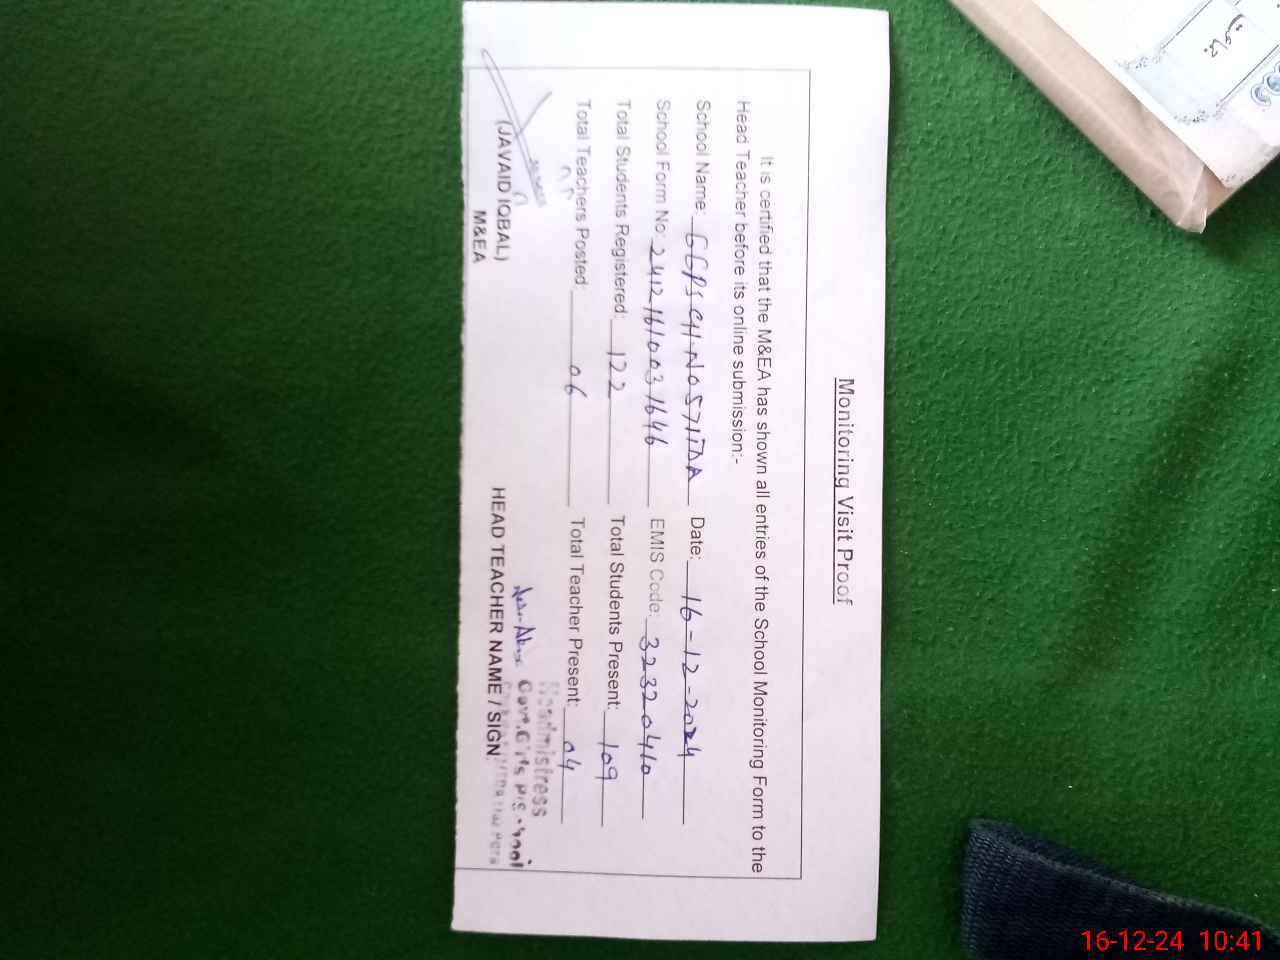 Monitoring Visit Proof
It is certified that the M&EA has shown all entries of the School Monitoring Form to the
Head Teacher before its online submission:-
School Name: GGPS CH. NO 571TDA Date: 16-12-2024
School Form No: 2412161003 1646 EMIS Code: 32320410
Total Students Registered: 122 Total Students Present: 109
Total Teachers Posted: 06 Total Teacher Present: 04
Headmistress
Govt.
(JAVAID IQBAL) HEAD TEACHER NAME / SIGN
M&EA
16-12-24 10:41